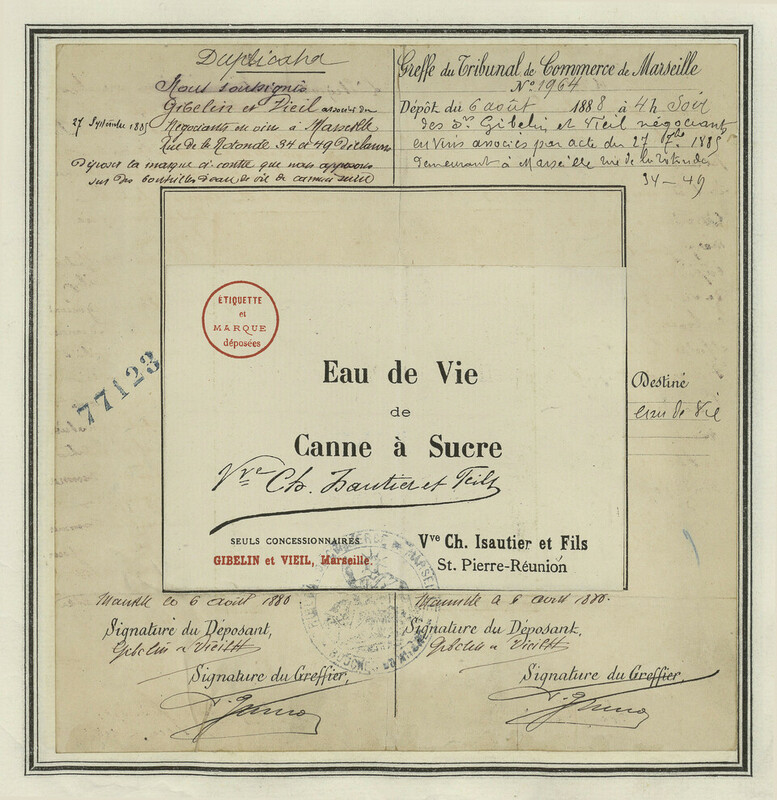 Duplicata
Nous soussignés
Gibelin et Vieil associés du
27 Septembre 1885
Négociants en vins à Marseille
Rue de la Rotonde 34 et 49 Déclarons
Déposer la marque ci contre que nous apposons
sur des bouteilles d'eau de vie de canne à sucre
Greffe du Tribunal de Commerce de Marseille
N° 1964
Dépôt du 6 août 1888 à 4h Soir
des Srs Gibelin et Vieil négociants
en vins associés par acte du 27 7bre 1885
demeurant à Marseille rue de la rotonde
34 - 49
ÉTIQUETTE
et
MARQUE
déposées
77123
Eau de Vie
de
Canne à Sucre
Vve Ch. Isautier et Fils
Destiné
eau de Vie
SEULS CONCESSIONNAIRES
GIBELIN et VIEIL, Marseille.
Vve Ch. Isautier et Fils
St. Pierre-Réunion
Signature du Déposant,
Gibelin & Vieil
Signature du Greffier,
Signature du Déposant,
Gibelin & Vieil
Signature du Greffier,